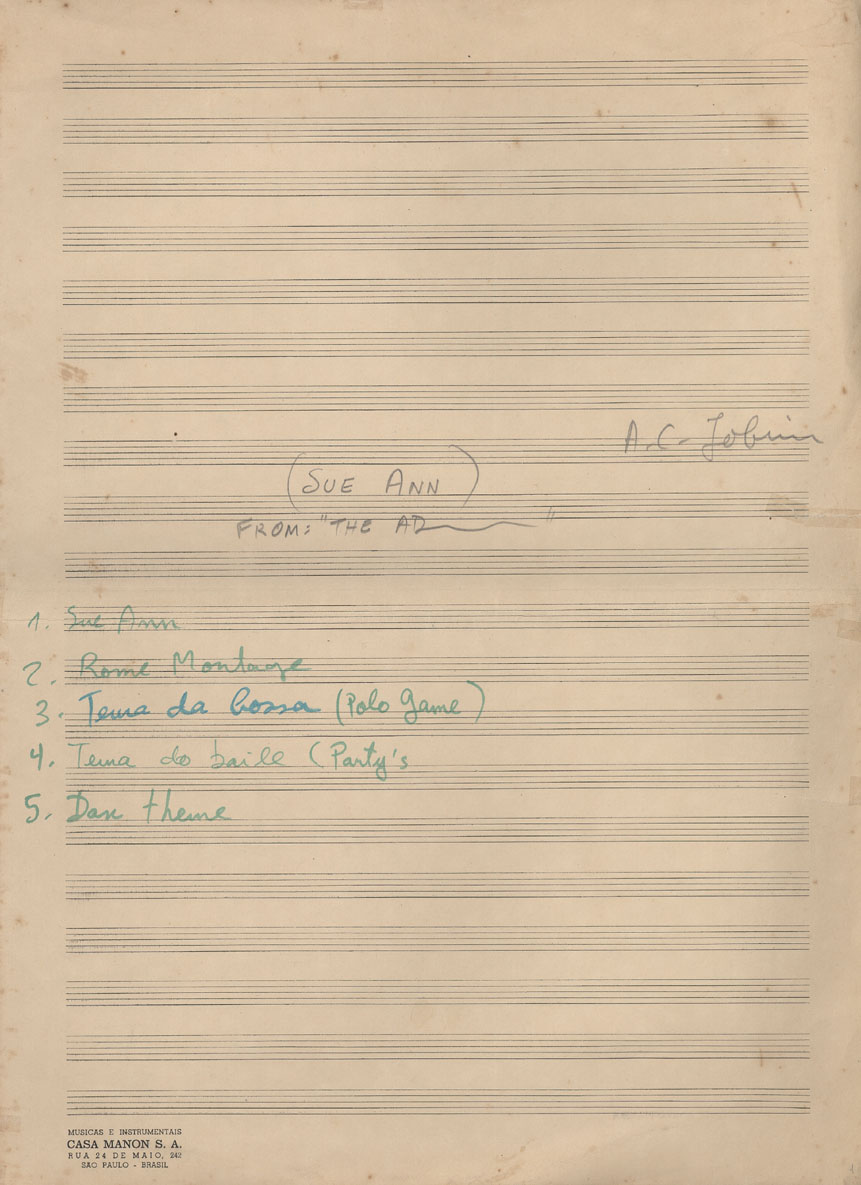 A.C. Jobim
(SUE ANN)
FROM: "THE AD "
1. Sue Ann
2. Rome Montage
3. Tema da bossa (Polo Game)
4. Tema do baile (Party's
5. Dax theme
MUSICAS E INSTRUMENTAIS
CASA MANON S. A.
RUA 24 DE MAIO, 242
SÃO PAULO - BRASIL